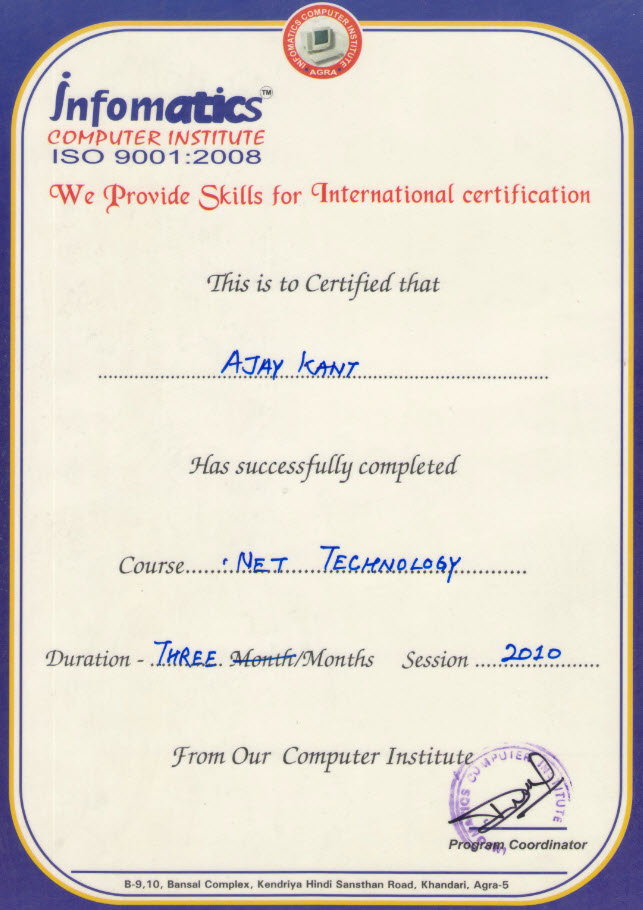 INFOMATICS COMPUTER INSTITUTE
AGRA
Infomatics TM
COMPUTER INSTITUTE
ISO 9001:2008
We Provide Skills for International certification
This is to Certified that
AJAY KANT
Has successfully completed
Course....... .NET TECHNOLOGY
Duration - THREE Month/Months Session 2010
From Our Computer Institute
INFOMATICS COMPUTER INSTITUTE
Program Coordinator
B-9,10, Bansal Complex, Kendriya Hindi Sansthan Road, Khandari, Agra-5